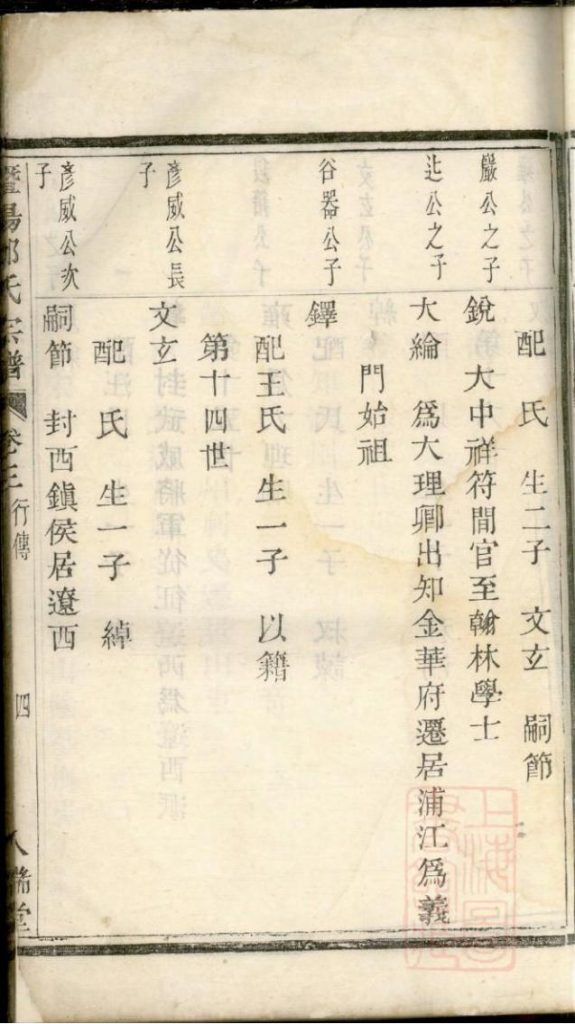 配氏 生二子 文玄 嗣節
嚴公之子
銳 大中祥符間官至翰林學士
辻公之子
大綸 為大理卿出知金華府遷居浦江為義
門始祖
谷器公子
鐸
配王氏 生一子 以籍
第十四世
彥威公長子
文玄
配氏 生一子 綽
彥威公次子
嗣節 封西鎮侯居遼西
暨陽 氏宗譜 卷三 行傳 四 人瑞堂
上海圖